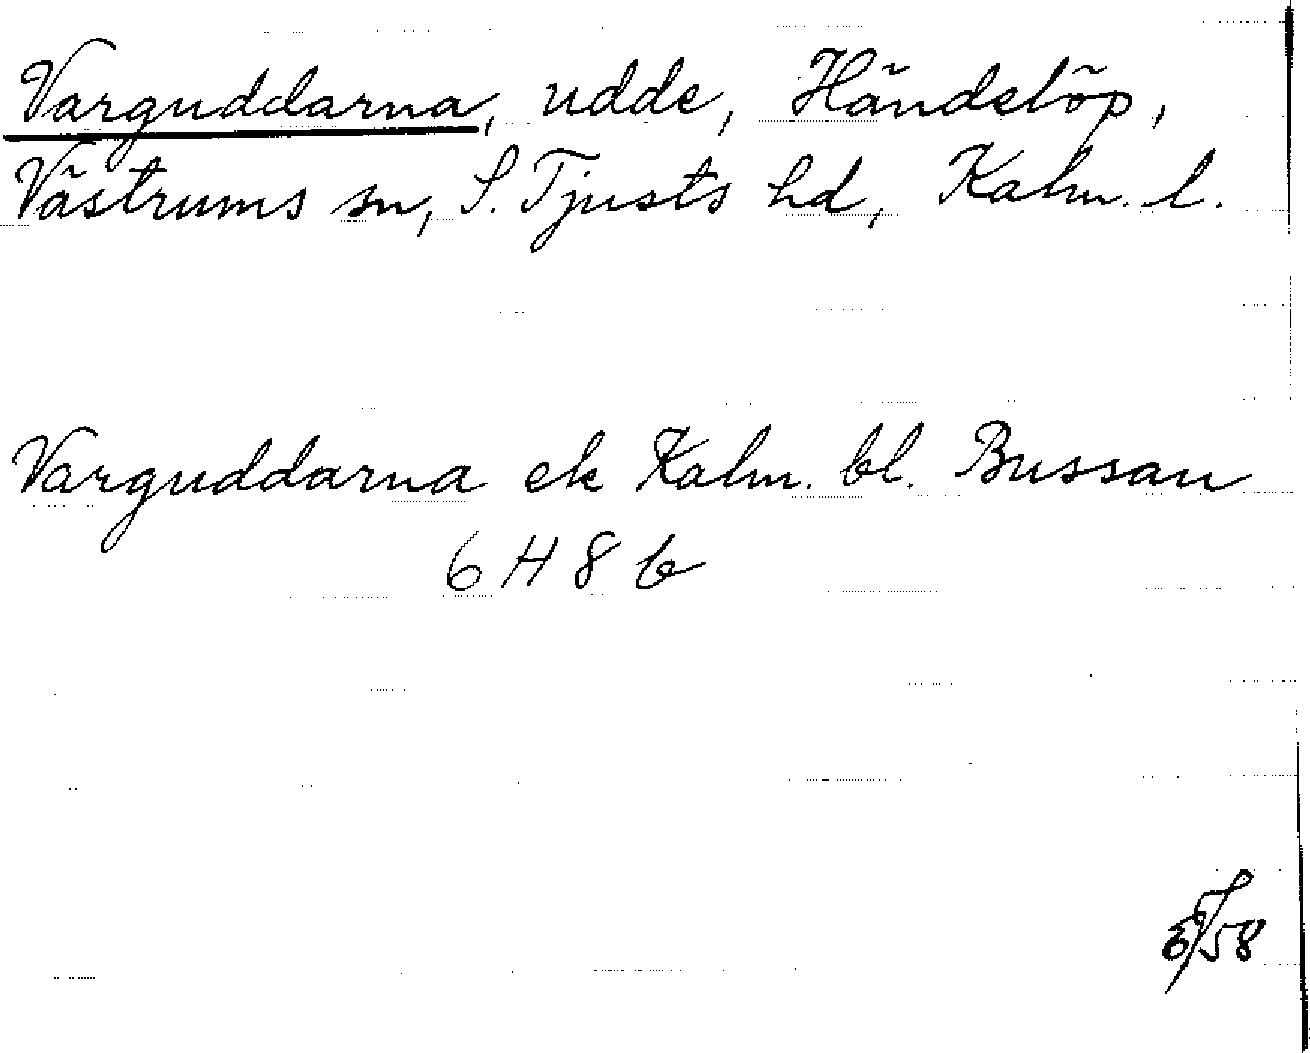 Varguddarna, udde, Händelöp,
Västrums sn, S. Tjusts hd, Kalm. l.
Varguddarna ek Kalm. bl. Bussan
6 H 8 b